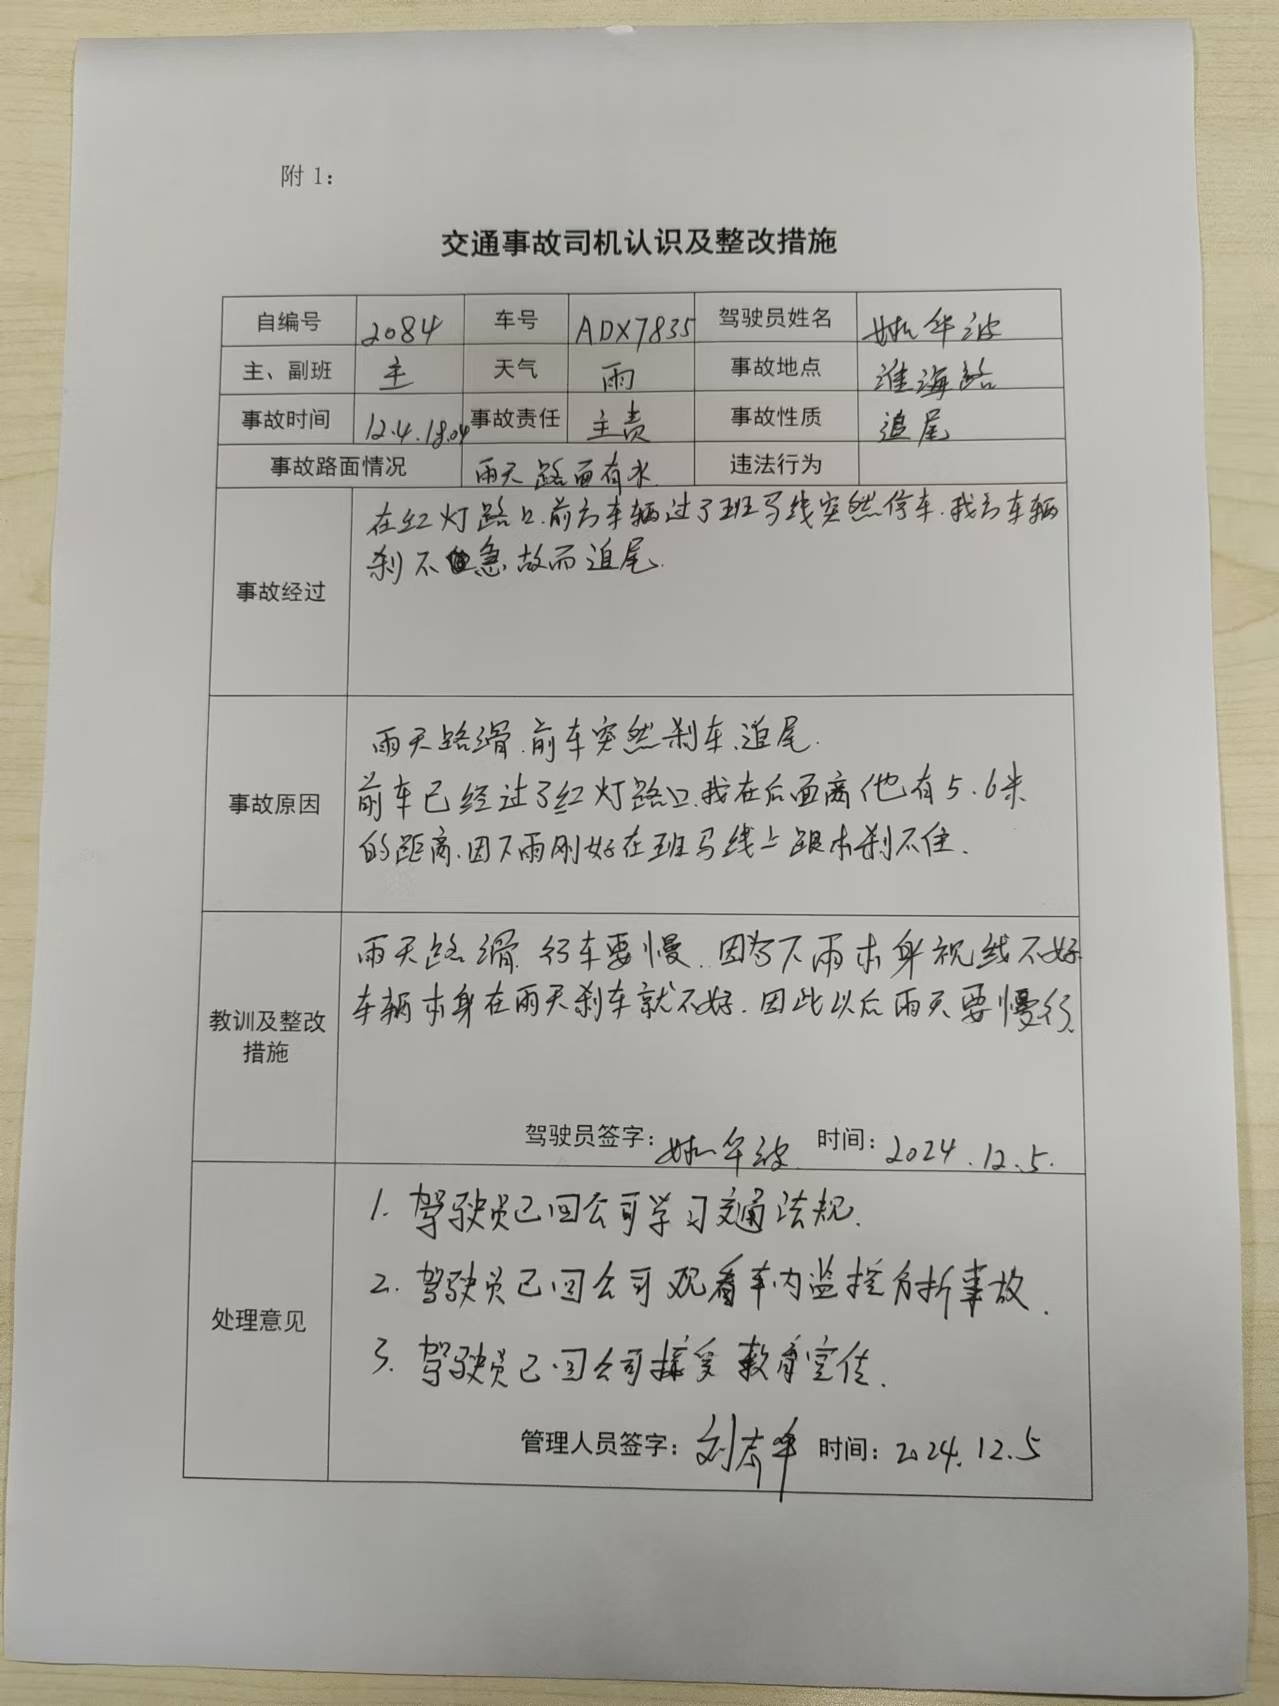 附 1：
交通事故司机认识及整改措施
自编号 2084 车号 ADX7835 驾驶员姓名 姚华波
主、副班 主 天气 雨 事故地点 淮海路
事故时间 12.4.18.04 事故责任 主责 事故性质 追尾
事故路面情况 雨天路面有水 违法行为
事故经过
在红灯路口.前方车辆过了班马线突然停车.我方车辆
刹不急故而追尾.
事故原因
雨天路滑.前车突然刹车、追尾.
前车已经过了红灯路口.我在后面离他有5.6米
的距离.因下雨刚好在班马线上跟本刹不住.
教训及整改措施
雨天路滑.行车要慢.因为下雨本身视线不好
车辆本身在雨天刹车就不好.因此以后雨天要慢行.
驾驶员签字：姚华波 时间：2024.12.5.
处理意见
1. 驾驶员已回公司学习交通法规.
2. 驾驶员已回公司观看车内监控分析事故.
3. 驾驶员已回公司接受教育宣传.
管理人员签字：刘 时间：2024.12.5